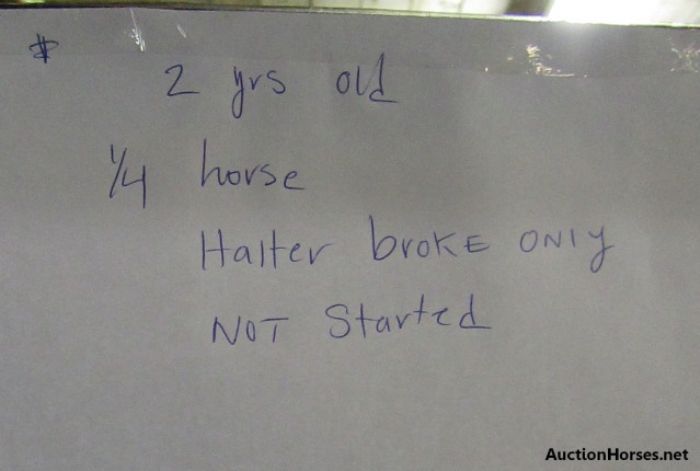 $
2 yrs old
1/4 horse
Halter broke only
NOT Started
AuctionHorses.net